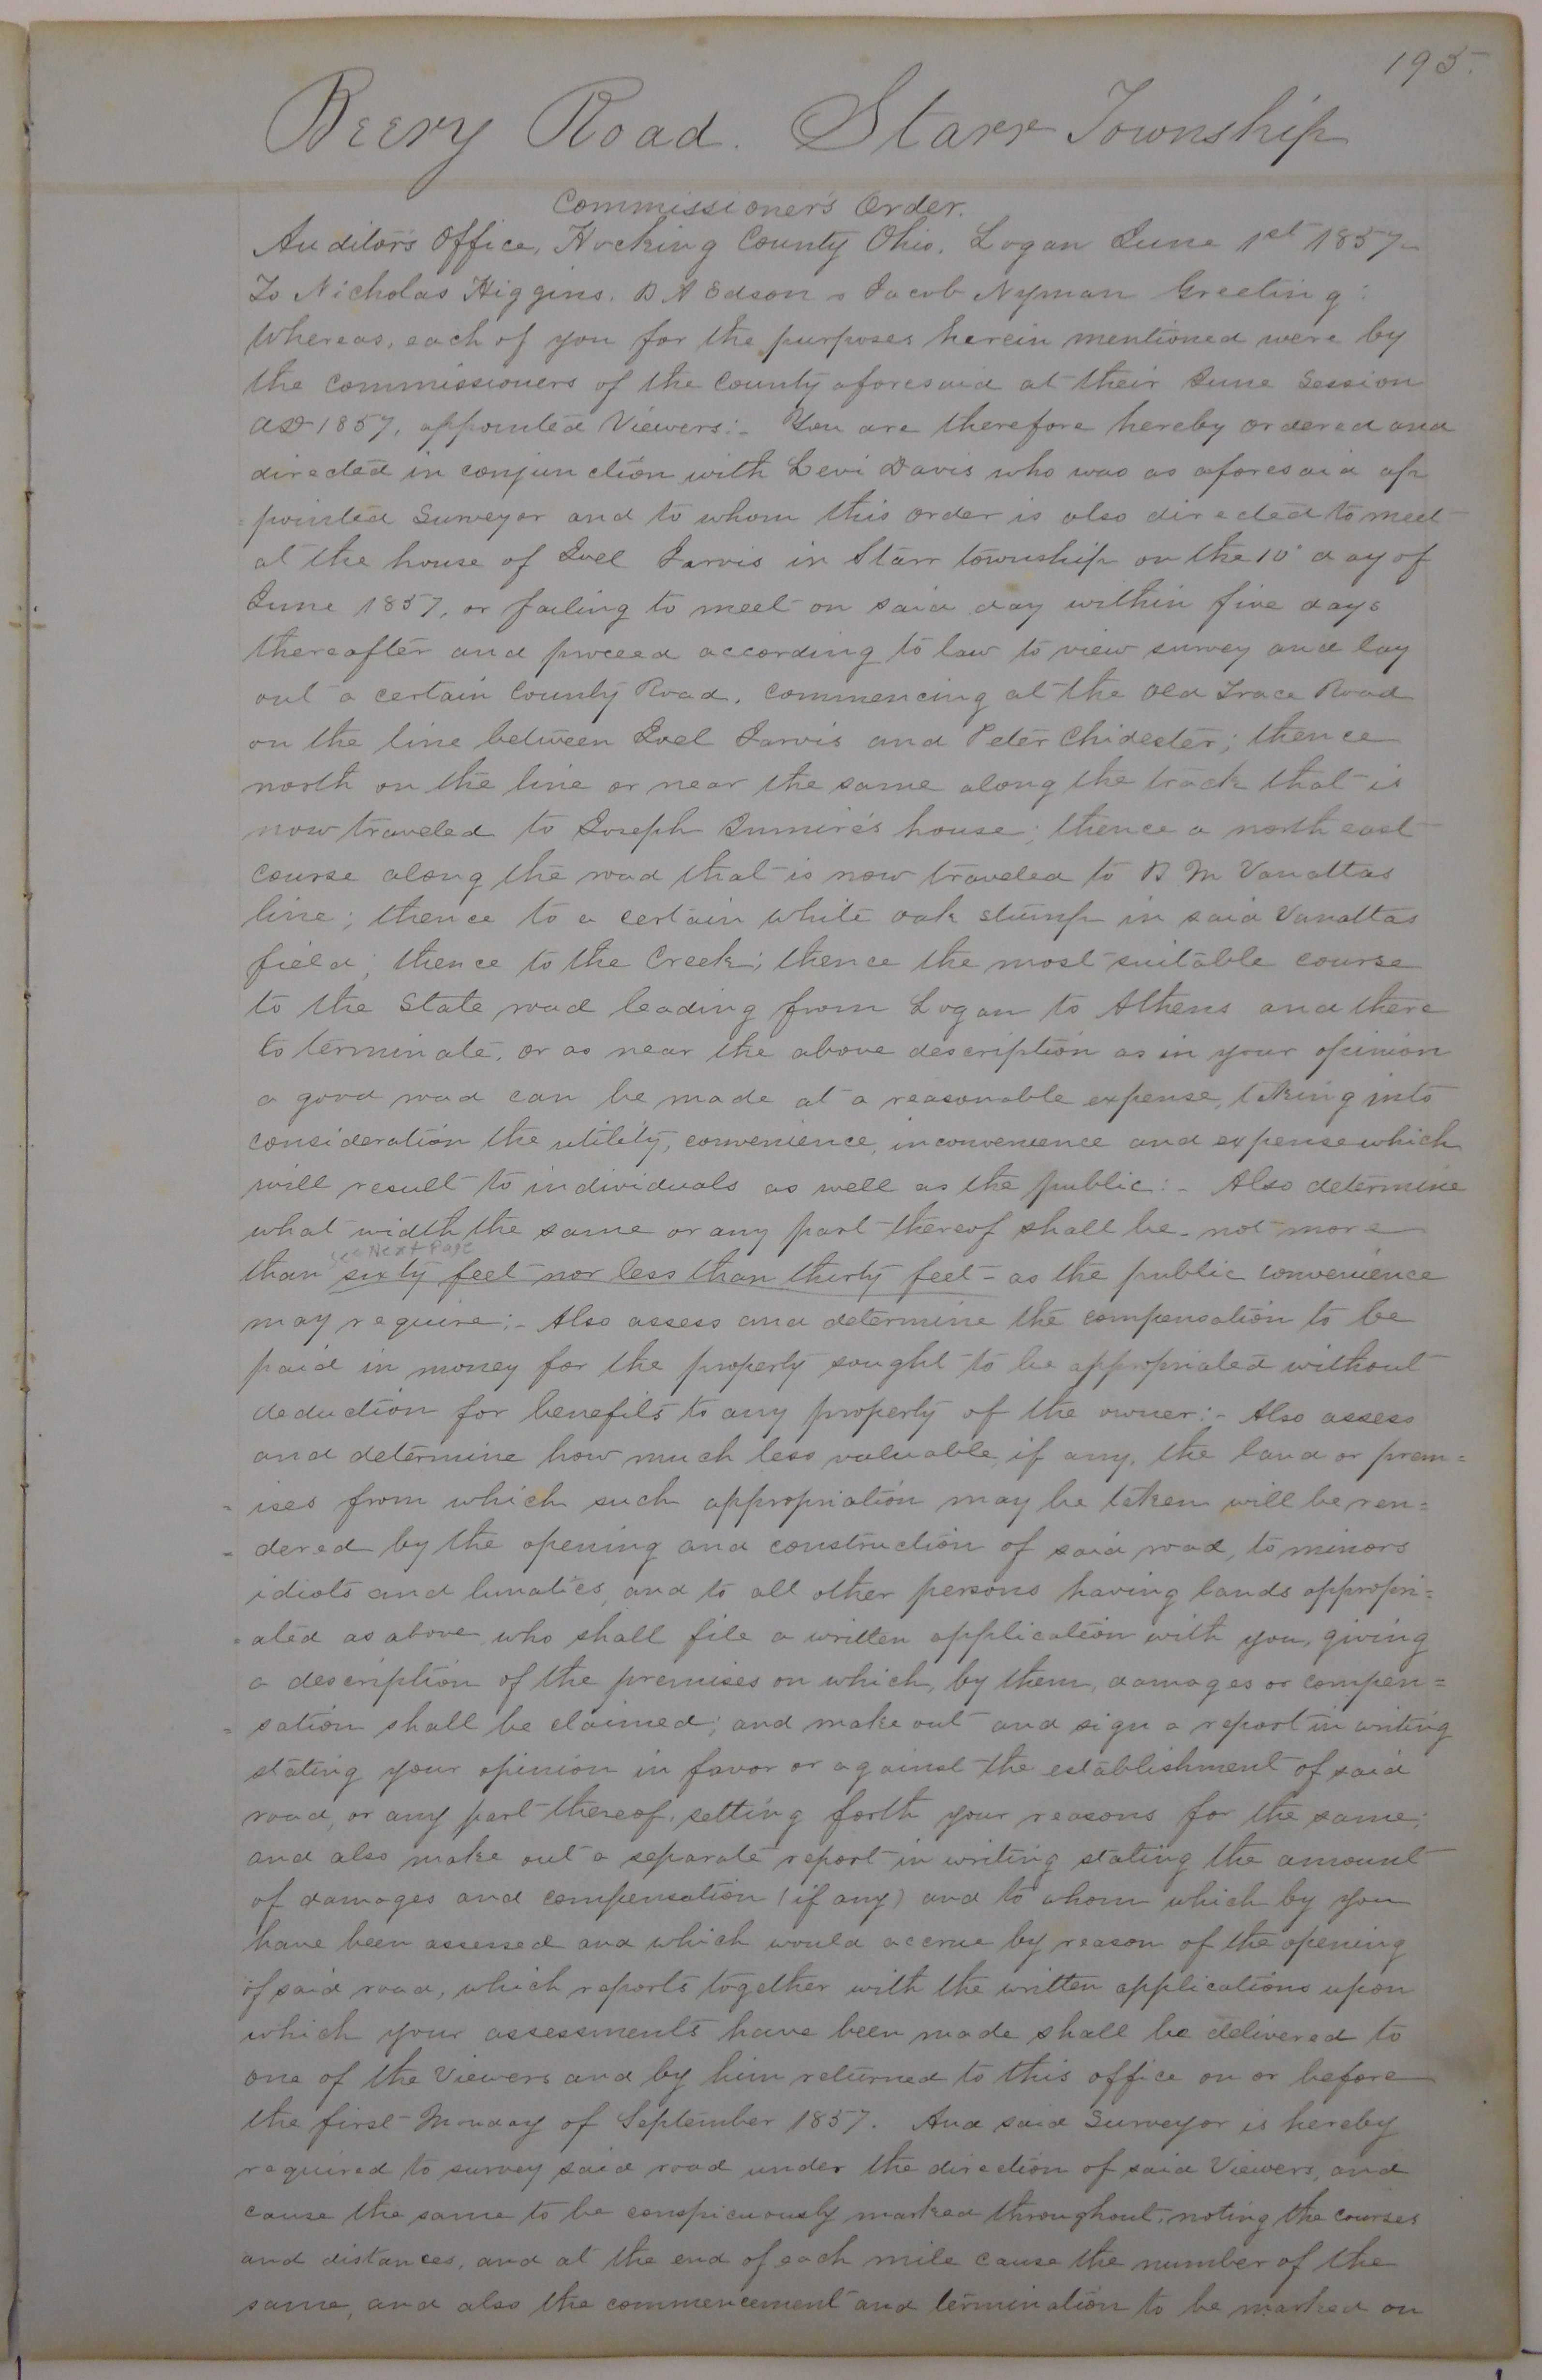 195.
Beery Road. Starr Township
Commissioner's Order.
Auditor's Office, Hocking County Ohio. Logan June 1st 1857-
To Nicholas Higgins, B A Edson & Jacob Nyman Greeting:
Whereas, each of you for the purposes herein mentioned were by
the commissioners of the County aforesaid at their June Session
AD 1857, appointed Viewers:- You are therefore hereby ordered and
directed in conjunction with Levi Davis who was as aforesaid ap
=pointed Surveyor and to whom this order is also directed to meet
at the house of Joel Jarvis in Starr township on the 10" day of
June 1857, or failing to meet on said day within five days
thereafter and proceed according to law to view survey and lay
out a certain County Road, commencing at the Old Trace Road
on the line between Joel Jarvis and Peter Chidester; thence
north on the line or near the same along the track that is
now traveled to Joseph house; thence a north east
course along the road that is now traveled to B M Vanattas
line; thence to a certain white oak stump in said Vanattas
field; thence to the Creek; thence the most suitable course
to the State road leading from Logan to Athens and there
to terminate, or as near the above description as in your opinion
a good road can be made at a reasonable expense, taking into
consideration the utility, convenience, inconvenience and expense which
will result to individuals as well as the public:- Also determine
what width the same or any part thereof shall be - not more
See Next Page
than sixty feet nor less than thirty feet - as the public convenience
may require:- Also assess and determine the compensation to be
paid in money for the property sought to be appropriated without
deduction for benefits to any property of the owner:- Also assess
and determine how much less valuable, if any, the land or prem=
=ises from which such appropriation may be taken will be ren=
=dered by the opening and construction of said road, to minors
idiots and lunatics, and to all other persons having lands appropri=
=ated as above, who shall file a written application with you, giving
a description of the premises on which, by them, damages or compen=
=sation shall be claimed; and make out and sign a report in writing
stating your opinion in favor or against the establishment of said
road, or any part thereof, setting forth your reasons for the same;
and also make out a separate report in writing stating the amount
of damages and compensation (if any) and to whom which by you
have been assessed and which would accrue by reason of the opening
of said road, which reports together with the written applications upon
which your assessments have been made shall be delivered to
one of the Viewers and by him returned to this office on or before
the first Monday of September 1857. And said Surveyor is hereby
required to survey said road under the direction of said Viewers, and
cause the same to be conspicuously marked throughout, noting the courses
and distances, and at the end of each mile cause the number of the
same, and also the commencement and termination to be marked on